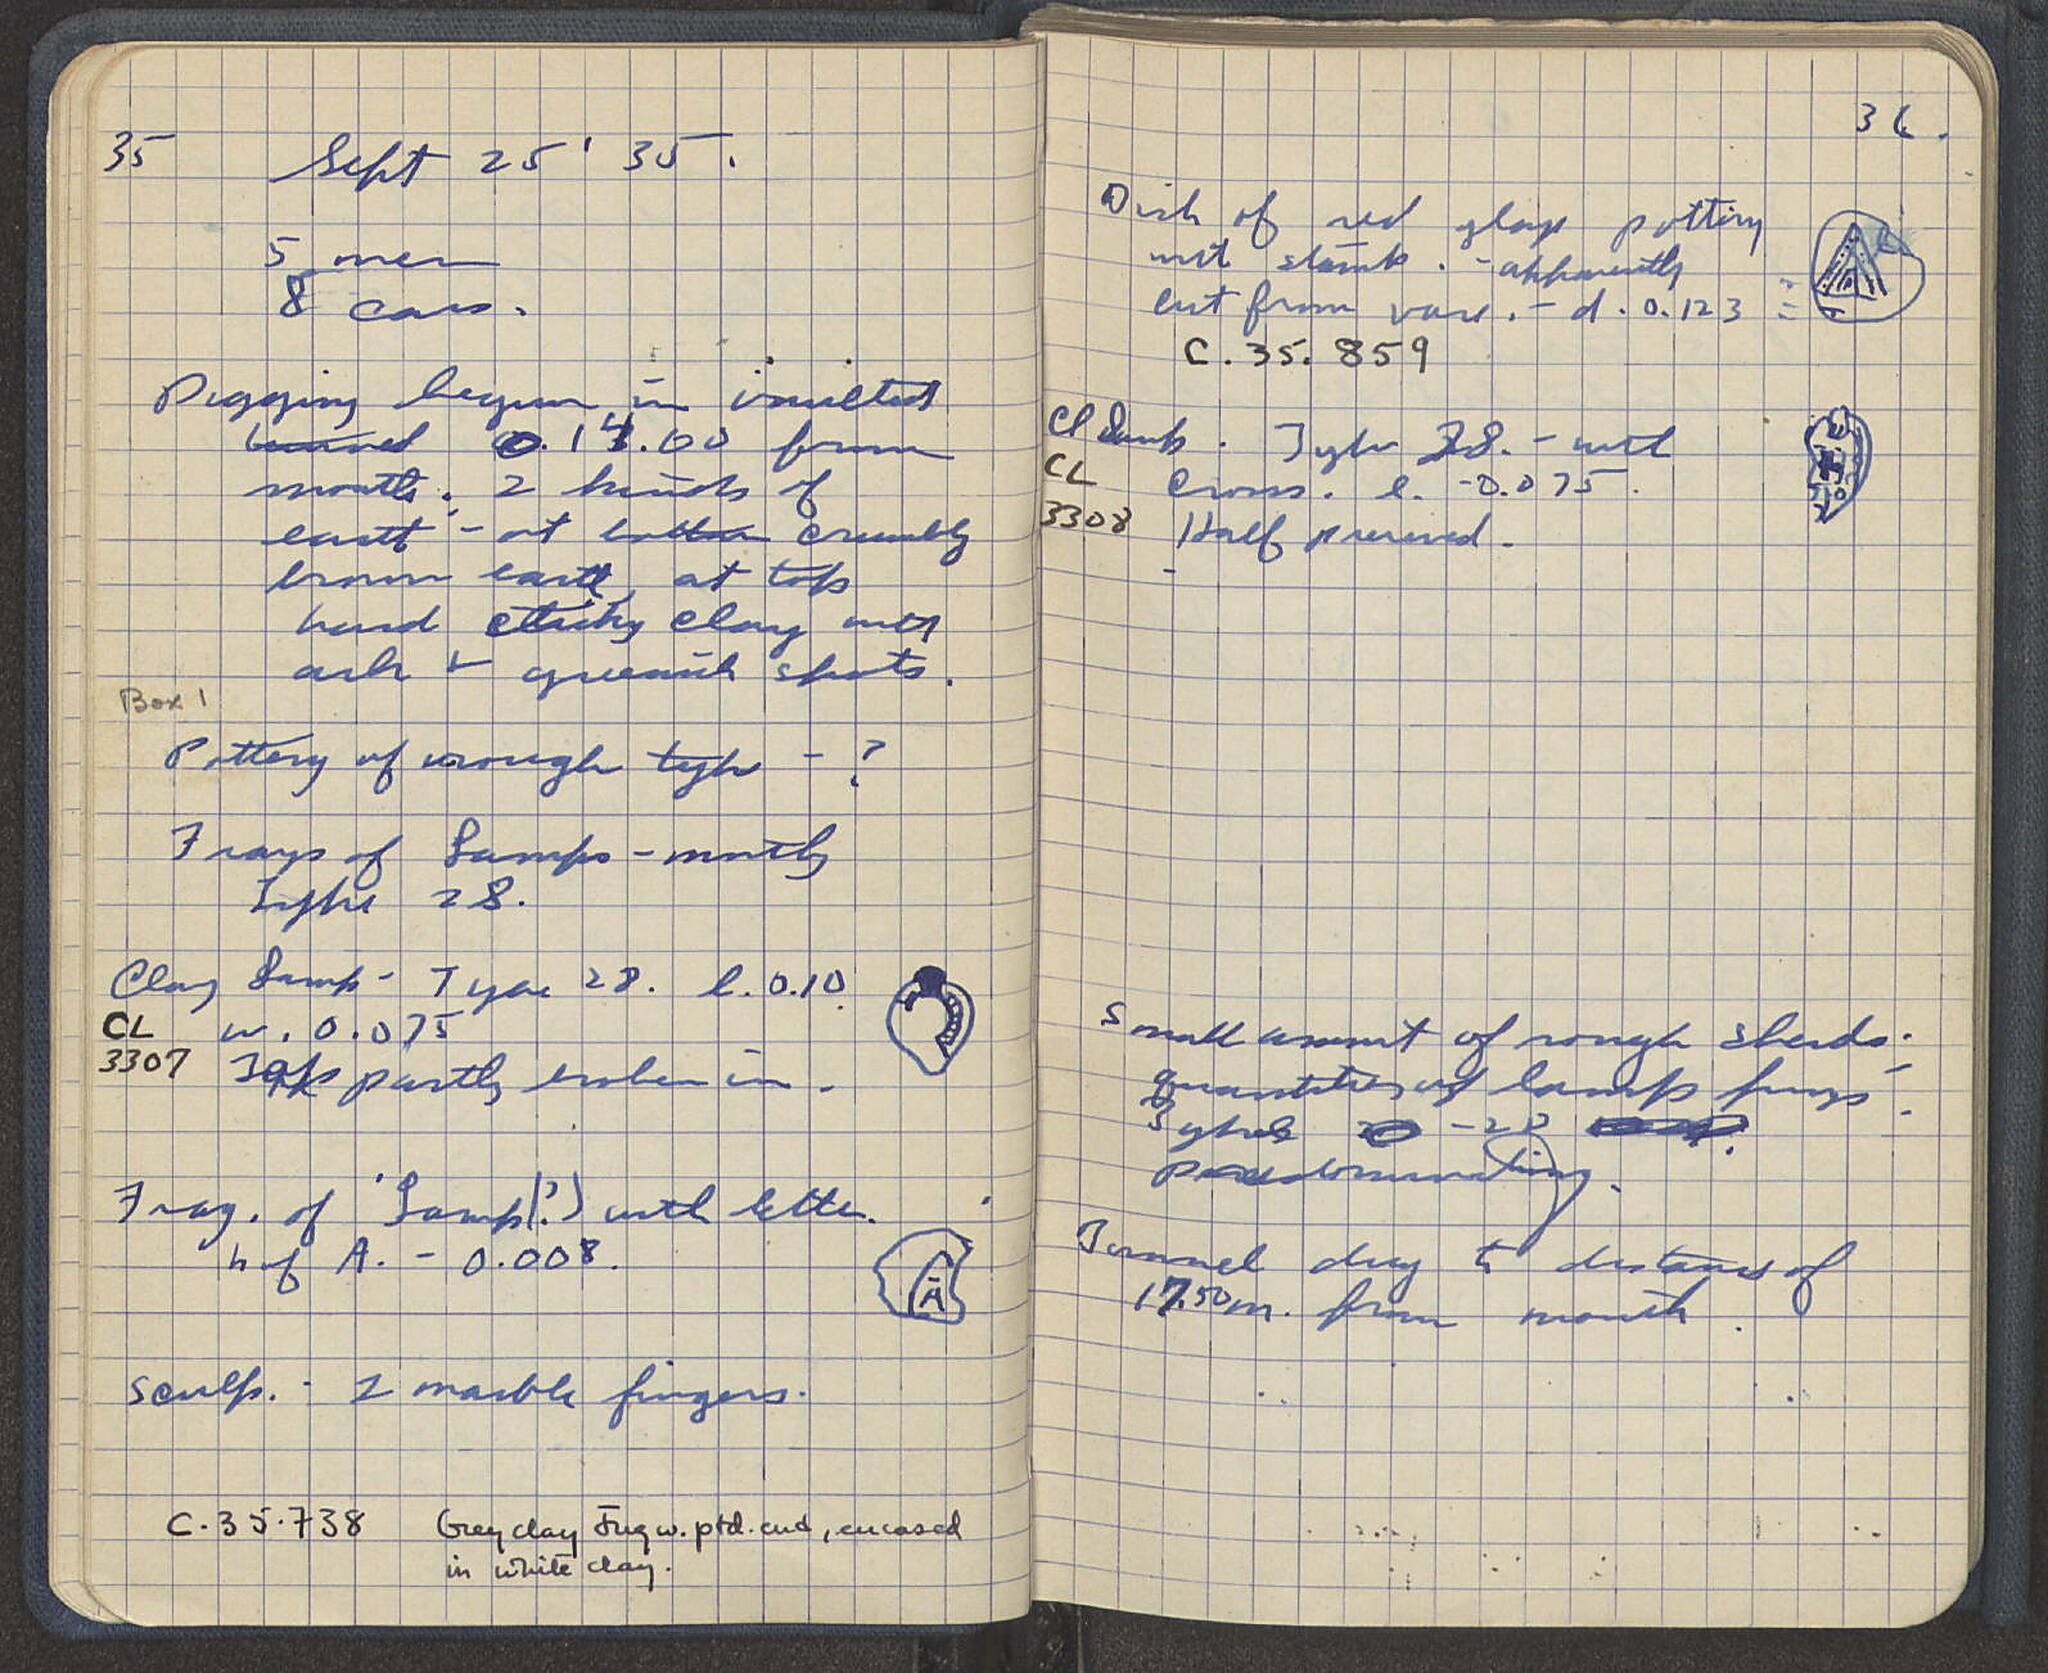 35 Sept 25 '35.
5 men
8 cars.
Digging begun in
0.14.00 from
mouth. 2 kinds of
earth - at bottom crumbly
brown earth, at top
hard sticky clay with
ash & greenish spots.
Box 1
Pottery of rough type - ?
Frags of Lamps - mostly
Type 28.
Clay Lamp - Type 28. l. 0.10
CL w. 0.075
3307 Top partly broken in.
Frag. of Lamp(?) with letter.
h of A. - 0.008.
A
Sculp. - 2 marble fingers.
C.35.738 Grey clay Jug w. ptd. end, encased
in white clay.
36.
Disk of red glaze pottery
with stamp. - apparently
cut from vase. - d. 0.123 =
C.35.859
Cl Lamp. Type 28. - with
CL Cross. l. - 0.075.
3308 Half preserved.
Small amount of rough sherds.
quantities of lamp frags -
Types - 28
predominating.
Tunnel dug to distance of
17.50 m. from mouth.